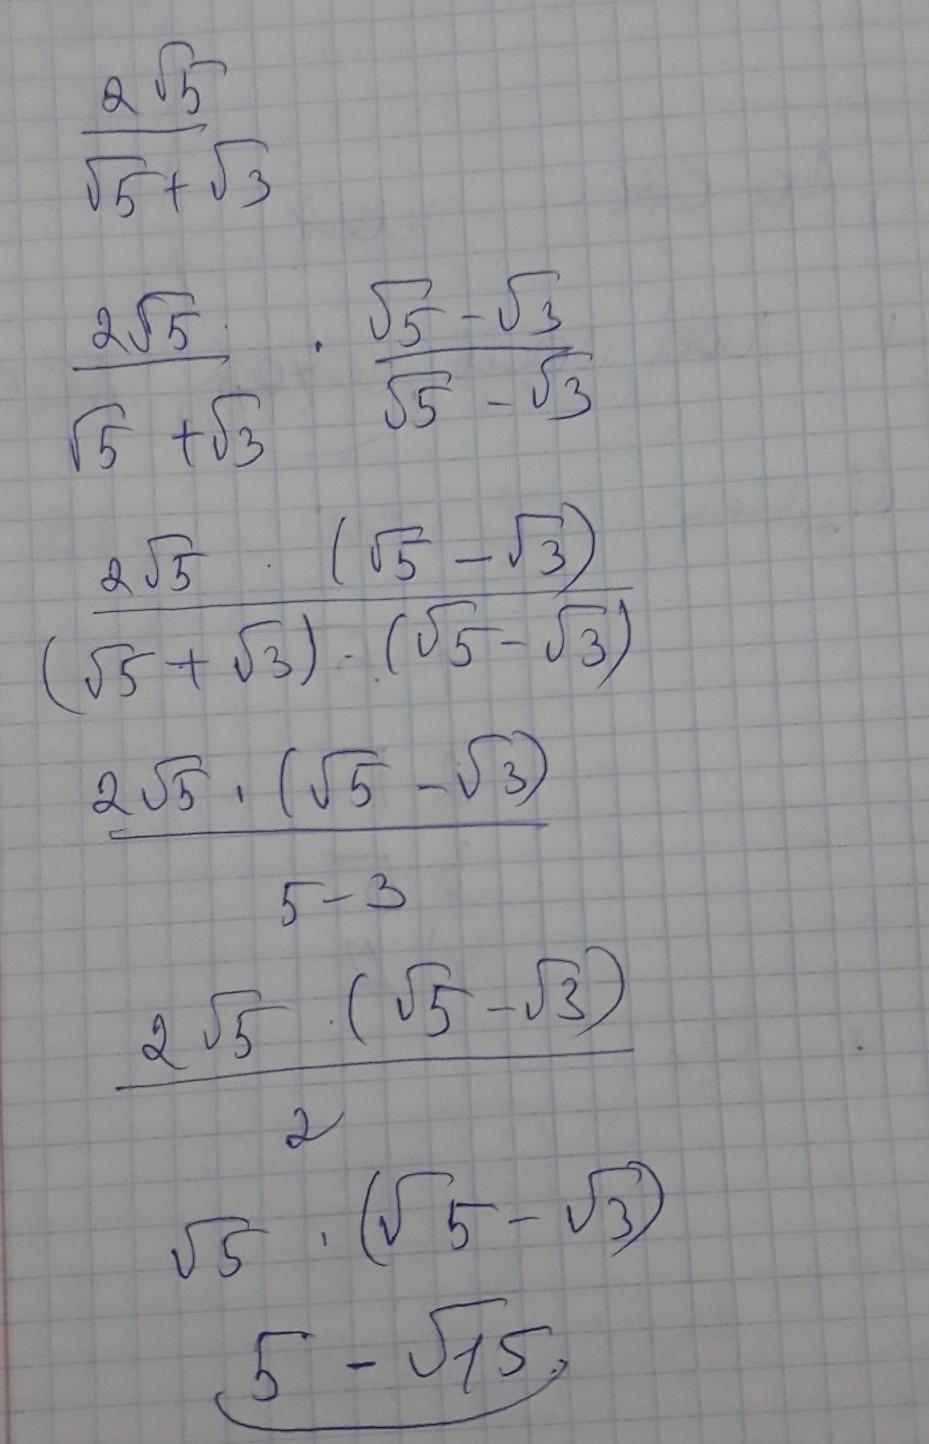 2√5
√5 + √3
2√5 · √5 - √3
√5 + √3 √5 - √3
2√5 · (√5 - √3)
(√5 + √3) · (√5 - √3)
2√5 · (√5 - √3)
5 - 3
2√5 · (√5 - √3)
2
√5 · (√5 - √3)
5 - √15